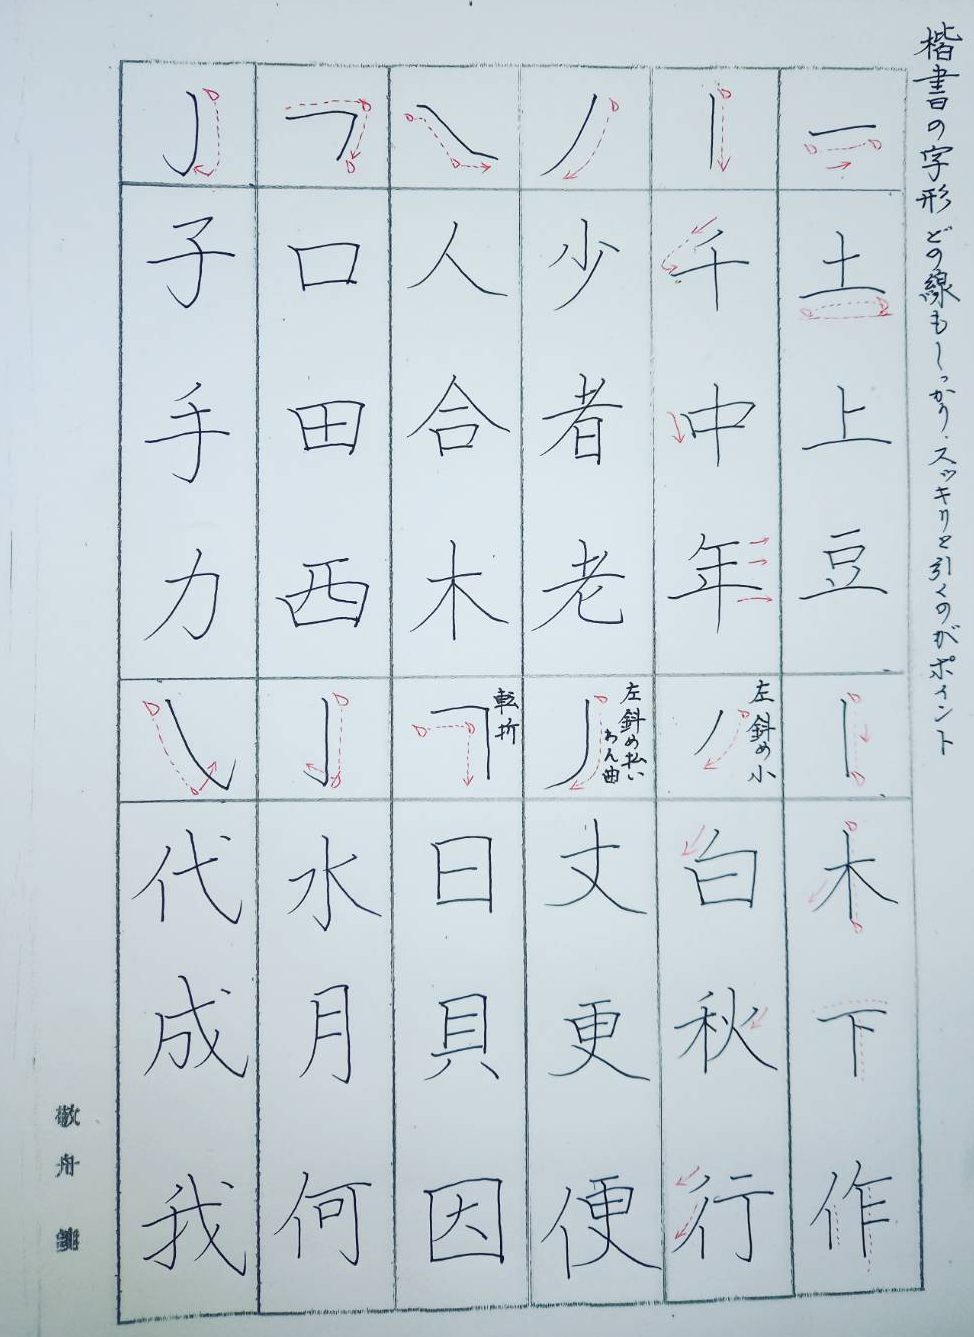 楷書の字形 どの線もしっかり、スッキリと引くのがポイント
一
土
上
豆
丨
千
中
年
丿
少
者
老
㇏
人
合
木
㇇
口
田
西
亅
子
手
力
丨
木
下
作
左斜め小
白
秋
行
左斜め払い
わん曲
丈
更
便
転折
日
貝
因
亅
水
月
何
㇂
代
成
我
敬舟